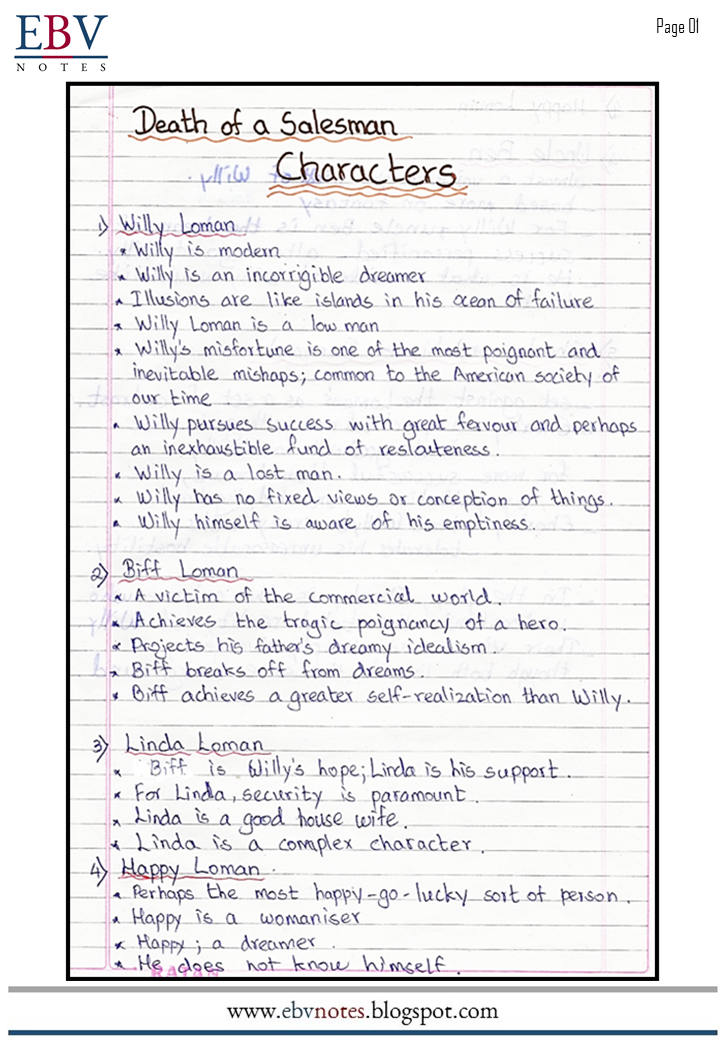 EBV
NOTES
Page 01
Death of a Salesman
Characters
1) Willy Loman
* Willy is modern
* Willy is an incorrigible dreamer
* Illusions are like islands in his ocean of failure
* Willy Loman is a low man
* Willy's misfortune is one of the most poignant and
inevitable mishaps; common to the American society of
our time
* Willy pursues success with great fervour and perhaps
an inexhaustible fund of reslouteness.
* Willy is a lost man.
* Willy has no fixed views or conception of things.
* Willy himself is aware of his emptiness.
2) Biff Loman
* A victim of the commercial world.
* Achieves the tragic poignancy of a hero.
* Projects his father's dreamy idealism.
* Biff breaks off from dreams.
* Biff achieves a greater self-realization than Willy.
3) Linda Loman
* Biff is Willy's hope; Linda is his support.
* For Linda, security is paramount.
* Linda is a good house wife.
* Linda is a complex character.
4) Happy Loman.
* Perhaps the most happy-go-lucky sort of person.
* Happy is a womaniser
* Happy; a dreamer.
* He does not know himself.
www.ebvnotes.blogspot.com